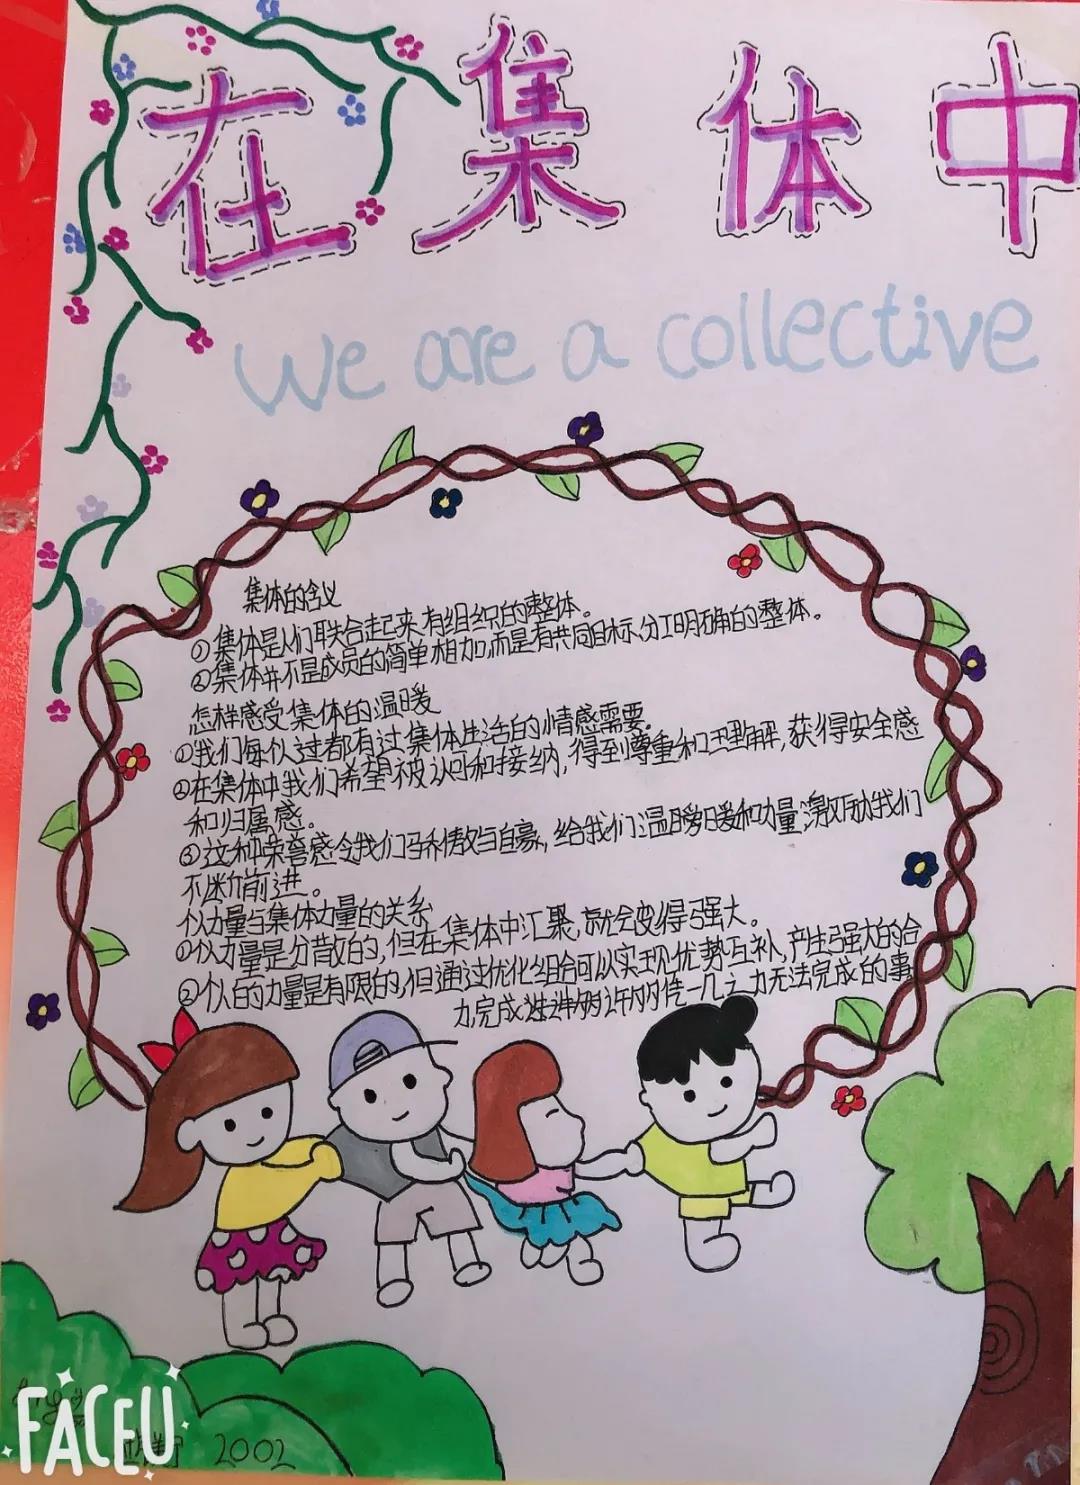 在集体中
We are a collective
集体的含义
①集体是人们联合起来,有组织的整体。
②集体并不是成员的简单相加,而是有共同目标、分工明确的整体。
怎样感受集体的温暖
①我们每个人过都有过集体生活的情感需要。
②在集体中我们希望被认可和接纳,得到尊重和理解,获得安全感
和归属感。
③这种荣誉感令我们骄傲与自豪,给我们温暖和力量激励我们
不断前进。
个人力量与集体力量的关系
①个人力量是分散的,但在集体中汇聚,就会变得强大。
②个人的力量是有限的,但通过优化组合可以实现优势互补,产生强大的合
力,完成许多凭一几之力无法完成的事
FACEU
2002